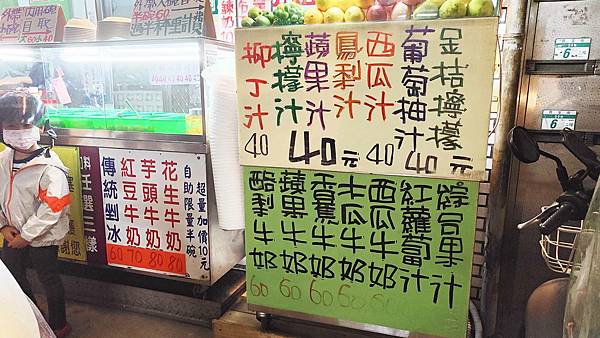 柳丁汁
檸檬汁
蘋果汁
鳳梨汁
西瓜汁
葡萄柚汁
金桔檸檬
40
40元
40
40元
酪梨牛奶
蘋果牛奶
香蕉牛奶
木瓜牛奶
西瓜牛奶
紅蘿蔔汁
綜合果汁
60
60
60
60
60
料任選三樣
傳統剉冰
紅豆牛奶
芋頭牛奶
花生牛奶
60
70
80
80
自助限量半碗
超量加價10元